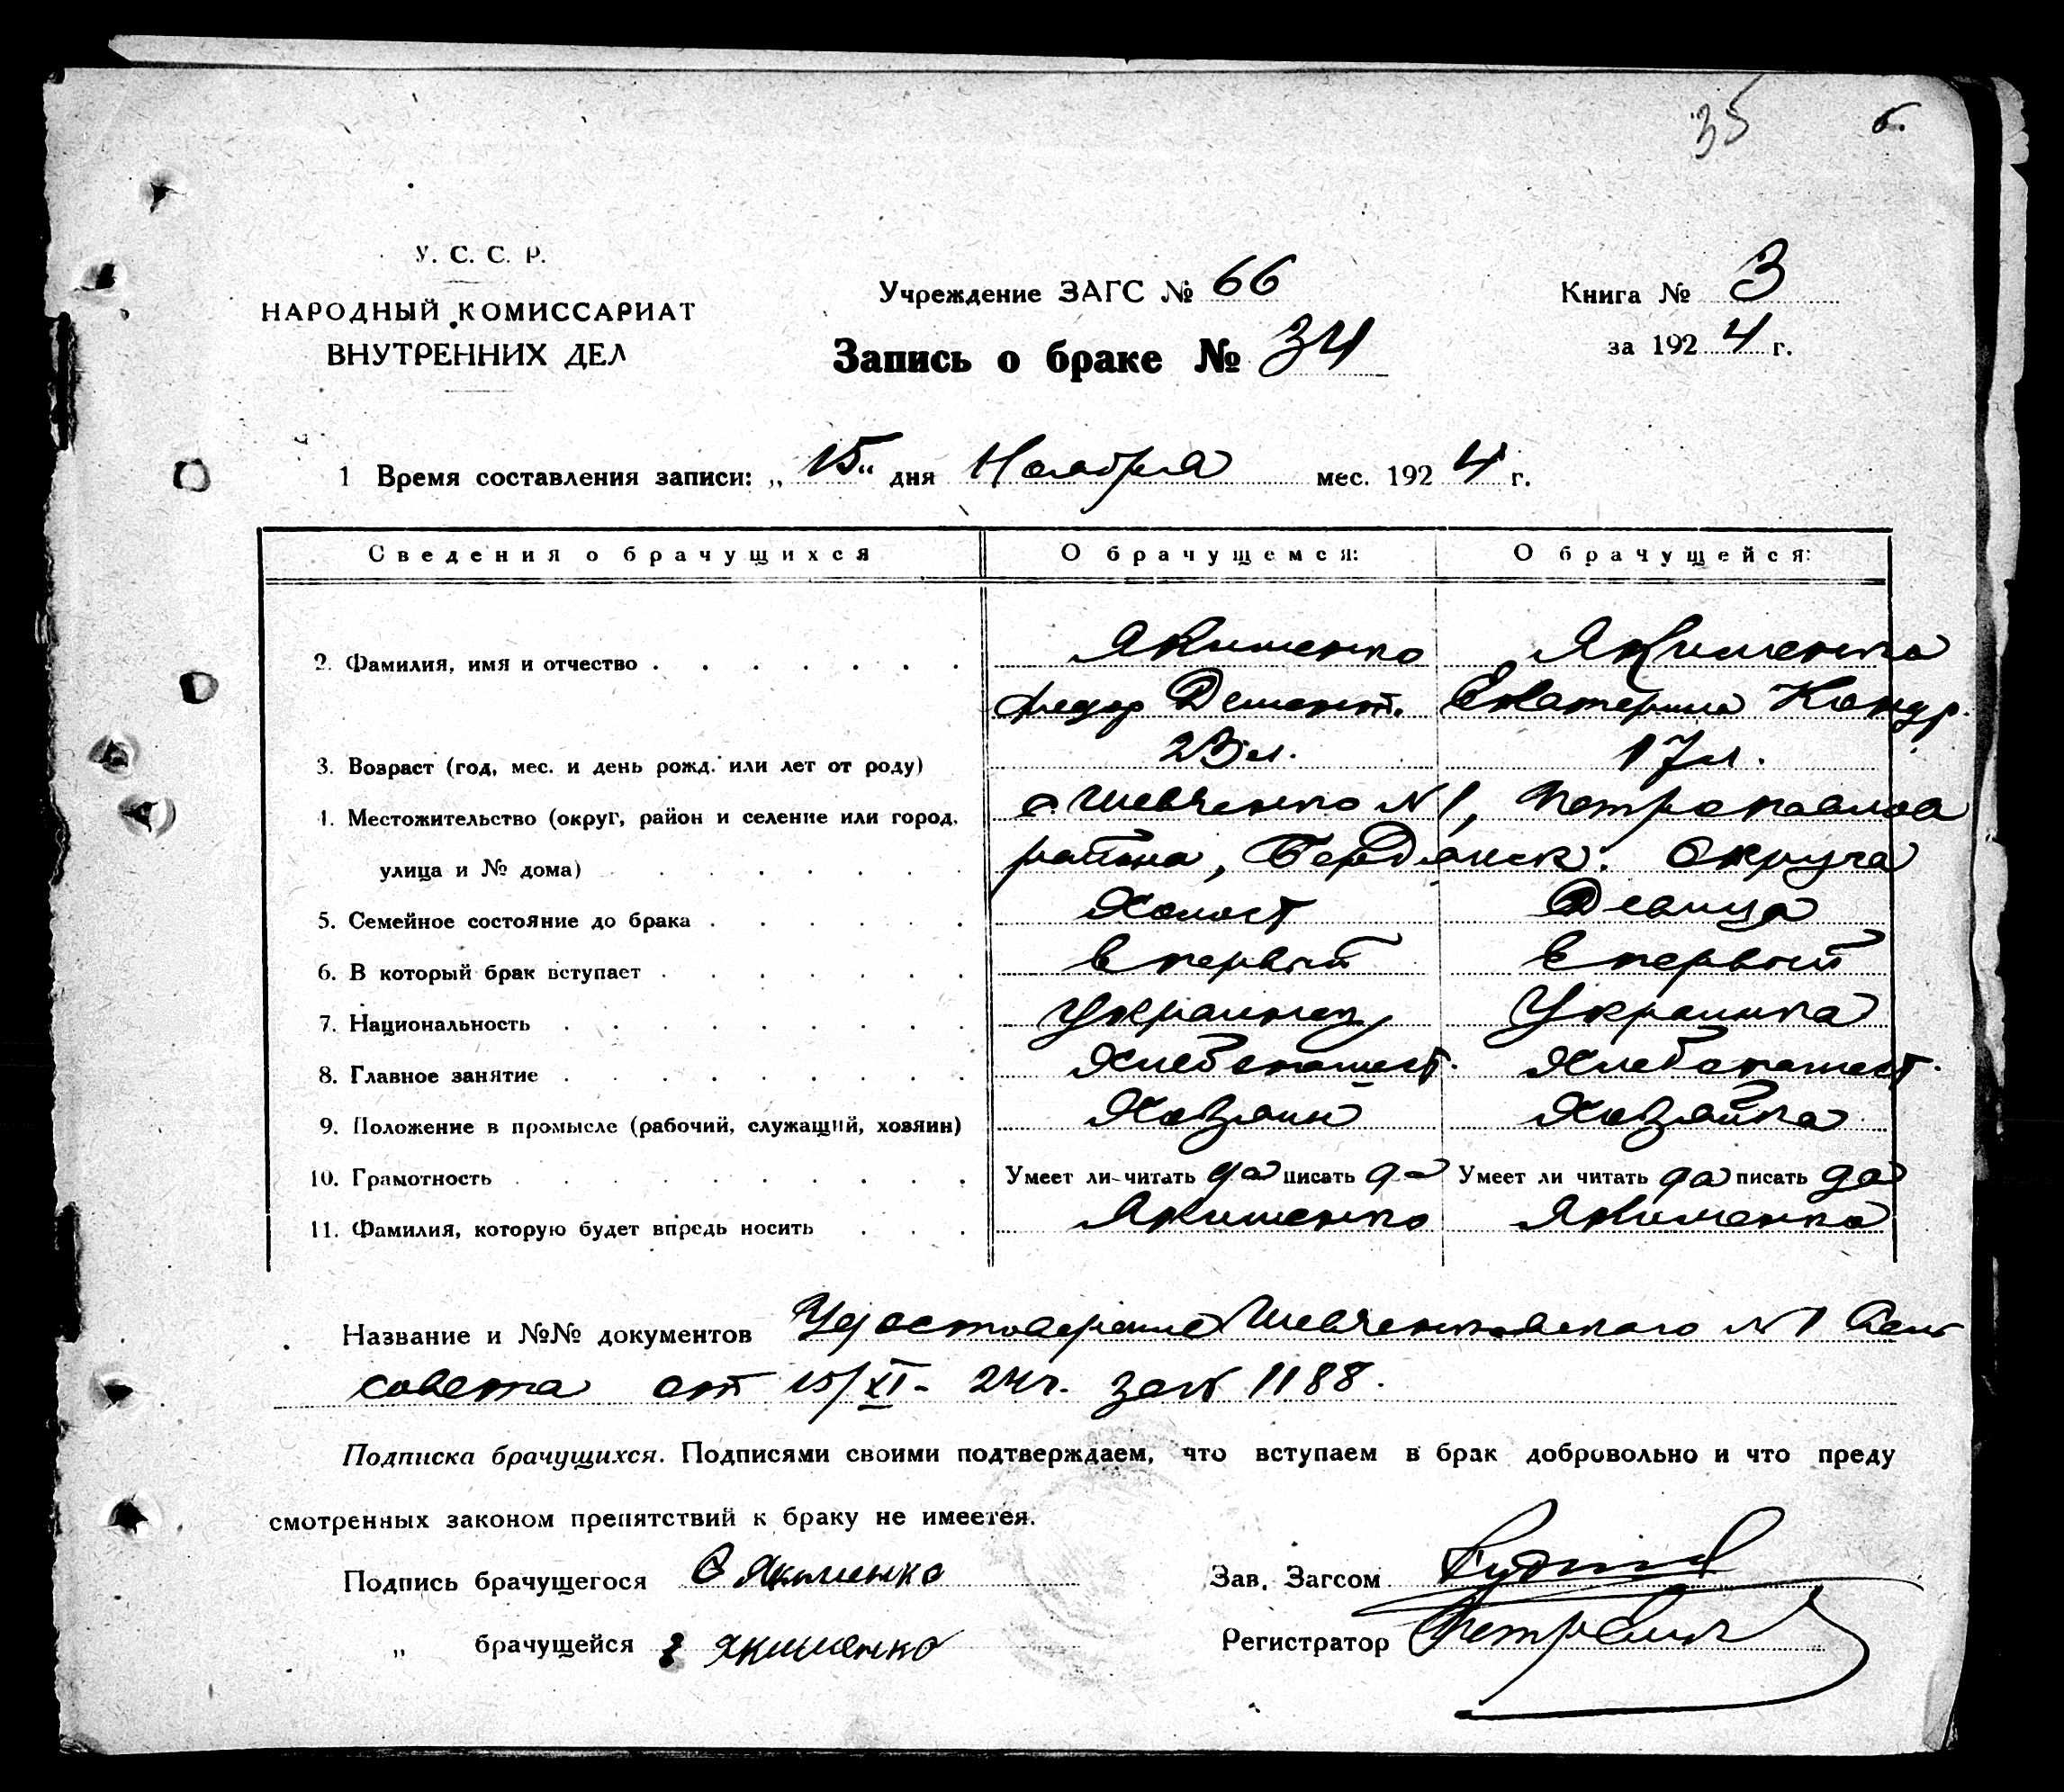 35 б.
У. С. С. Р.
НАРОДНЫЙ КОМИССАРИАТ
ВНУТРЕННИХ ДЕЛ
Учреждение ЗАГС № 66
Запись о браке № 34
Книга № 3
за 1924 г.
1 Время составления записи: „ 15 " дня Ноября мес. 1924 г.
Сведения о брачущихся О брачущемся: О брачущейся:
2. Фамилия, имя и отчество Якименко Якименко
Федор Демент. Екатерина Кондр.
3. Возраст (год, мес. и день рожд. или лет от роду) 23 л. 17 л.
4. Местожительство (округ, район и селение или город, с. Шевченко N 1, Петропавлов
улица и № дома) района, Бердянск. Округа
5. Семейное состояние до брака Холост Девица
6. В который брак вступает в первый в первый
7. Национальность Украинец Украинка
8. Главное занятие Хлебопашест. Хлебопашест.
9. Положение в промысле (рабочий, служащий, хозяин) Хозяин Хозяйка
10. Грамотность Умеет ли читать да писать да Умеет ли читать да писать да
11. Фамилия, которую будет впредь носить Якименко Якименко
Название и №№ документов Удостоверение Шевченковского N 1 Сель
совета от 15/XI - 24 г. за N 1188.
Подписка брачущихся. Подписями своими подтверждаем, что вступаем в брак добровольно и что преду
смотренных законом препятствий к браку не имеется.
Подпись брачущегося Якименко Зав. Загсом
„ брачущейся Якименко Регистратор